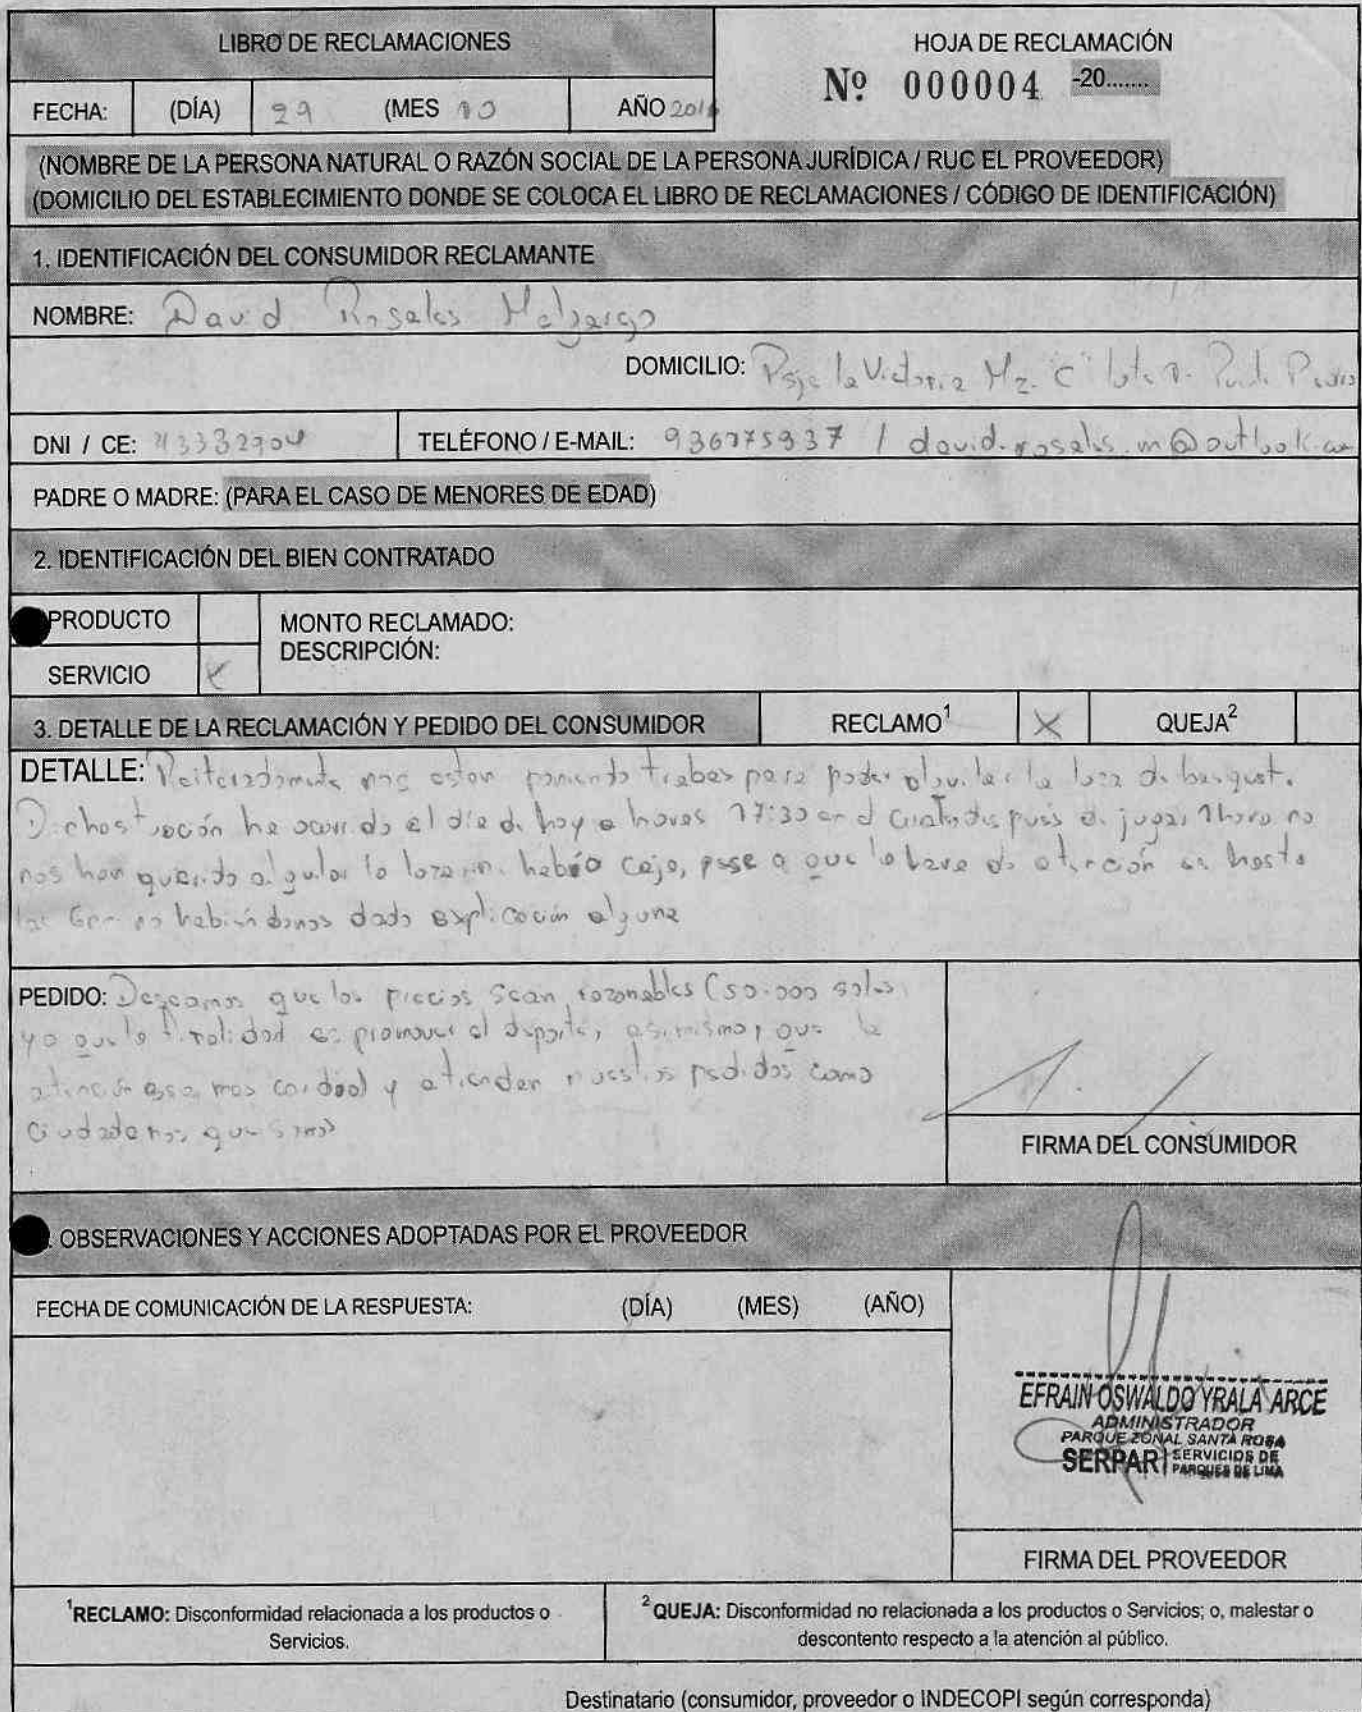 LIBRO DE RECLAMACIONES
HOJA DE RECLAMACIÓN
Nº 000004 -20.......
FECHA: (DÍA) 29 (MES 10 AÑO 201
(NOMBRE DE LA PERSONA NATURAL O RAZÓN SOCIAL DE LA PERSONA JURÍDICA / RUC EL PROVEEDOR)
(DOMICILIO DEL ESTABLECIMIENTO DONDE SE COLOCA EL LIBRO DE RECLAMACIONES / CÓDIGO DE IDENTIFICACIÓN)
1. IDENTIFICACIÓN DEL CONSUMIDOR RECLAMANTE
NOMBRE: David Rosales
DOMICILIO: Psje la Victoria Mz. "C" lote
DNI / CE: 43332904 TELÉFONO / E-MAIL: 936775937 / david.rosales.m@outlook.com
PADRE O MADRE: (PARA EL CASO DE MENORES DE EDAD)
2. IDENTIFICACIÓN DEL BIEN CONTRATADO
PRODUCTO
SERVICIO X
MONTO RECLAMADO:
DESCRIPCIÓN:
3. DETALLE DE LA RECLAMACIÓN Y PEDIDO DEL CONSUMIDOR RECLAMO¹ X QUEJA²
DETALLE: Reiteradamente nos estan poniendo trabas para poder alquilar la loza de basquet.
Dicha situación ha ocurrido el día de hoy a horas 17:30 en el después de jugar 1 hora no
nos han querido alquilar la loza ni había caja, pese a que la hora de atención es hasta
las 6pm no habiendonos dado explicación alguna
PEDIDO: Deseamos que los precios sean razonables (50.000 soles
ya que la finalidad es promover el deporte, asimismo, que la
atención sea mas cordial y atiendan nuestros pedidos como
ciudadanos que somos
FIRMA DEL CONSUMIDOR
. OBSERVACIONES Y ACCIONES ADOPTADAS POR EL PROVEEDOR
FECHA DE COMUNICACIÓN DE LA RESPUESTA: (DÍA) (MES) (AÑO)
EFRAIN OSWALDO YRALA ARCE
ADMINISTRADOR
PARQUE ZONAL SANTA ROSA
SERPAR SERVICIOS DE
PARQUES DE LIMA
FIRMA DEL PROVEEDOR
¹RECLAMO: Disconformidad relacionada a los productos o
Servicios.
²QUEJA: Disconformidad no relacionada a los productos o Servicios; o, malestar o
descontento respecto a la atención al público.
Destinatario (consumidor, proveedor o INDECOPI según corresponda)